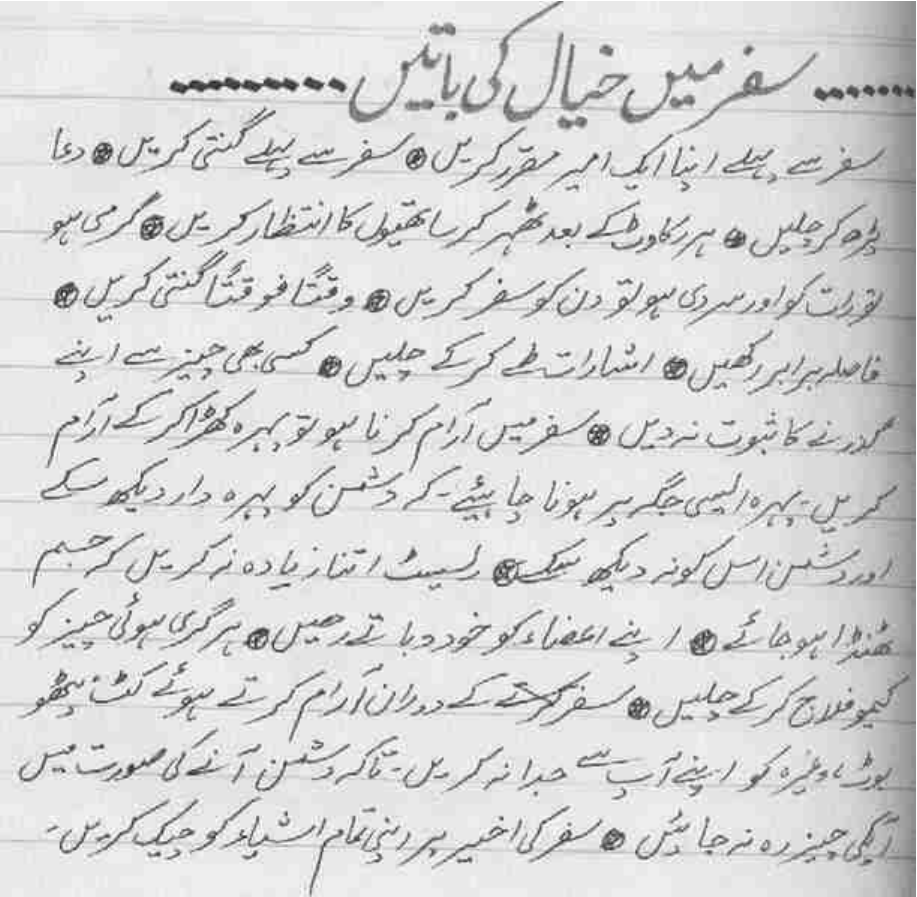 ........ سفر میں خیال کی باتیں ..........
سفر سے پہلے اپنا ایک امیر مقرر کریں ֍ سفر سے پہلے گنتی کریں ֍ دعا
پڑھ کر چلیں ֍ ہر رکاوٹ کے بعد ٹھہر کر ساتھیوں کا انتظار کریں ֍ گرمی ہو
تو رات کو اور سردی ہو تو دن کو سفر کریں ֍ وقتًا فوقتًا گنتی کریں ֍
فاصلہ برابر رکھیں ֍ اشارات طے کر کے چلیں ֍ کسی بھی چیز سے اپنے
گذرنے کا ثبوت نہ دیں ֍ سفر میں آرام کرنا ہو تو پہرہ کھڑا کر کے آرام
کریں۔ پہرہ ایسی جگہ پر ہونا چاہیئے۔ کہ دشمن کو پہرہ دار دیکھ سکے
اور دشمن اس کو نہ دیکھ سکے ֍ ریسٹ اتنا زیادہ نہ کریں کہ جسم
ٹھنڈا ہو جائے ֍ اپنے اعضاء کو خود دباتے رھیں ֍ ہر گری ہوئی چیز کو
کیموفلاج کر کے چلیں ֍ سفر کے دوران آرام کرتے ہوئے کٹ، پٹھو
بوٹ، وغیرہ کو اپنے آپ سے جدا نہ کریں۔ تاکہ دشمن آنے کی صورت میں
آپکی چیز رہ نہ جائیں ֍ سفر کی اخیر پر اپنی تمام اشیاء کو چیک کریں۔